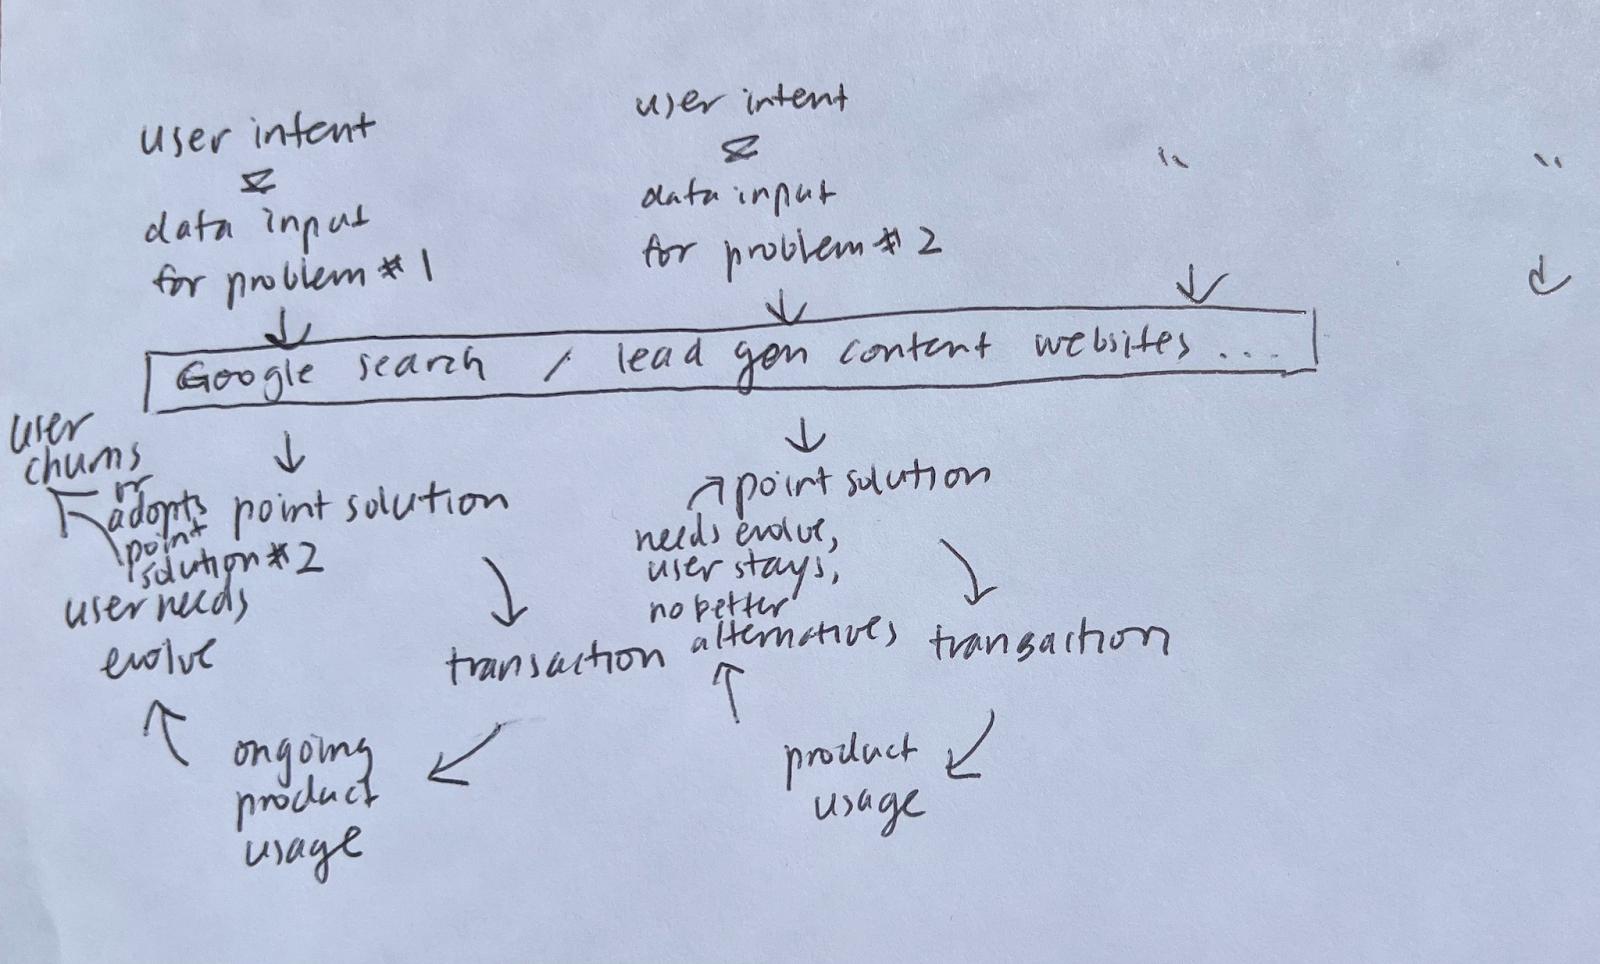 user intent
&
data input
for problem #1
user intent
&
data input
for problem #2
"
"
Google search / lead gen content websites ...
user
churns
or
adopts
point
solution #2
point solution
user needs
evolve
transaction
ongoing
product
usage
point solution
needs evolve,
user stays,
no better
alternatives
transaction
product
usage